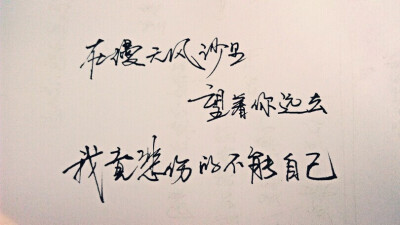 在漫天风沙里
望着你远去
我竟悲伤的不能自己